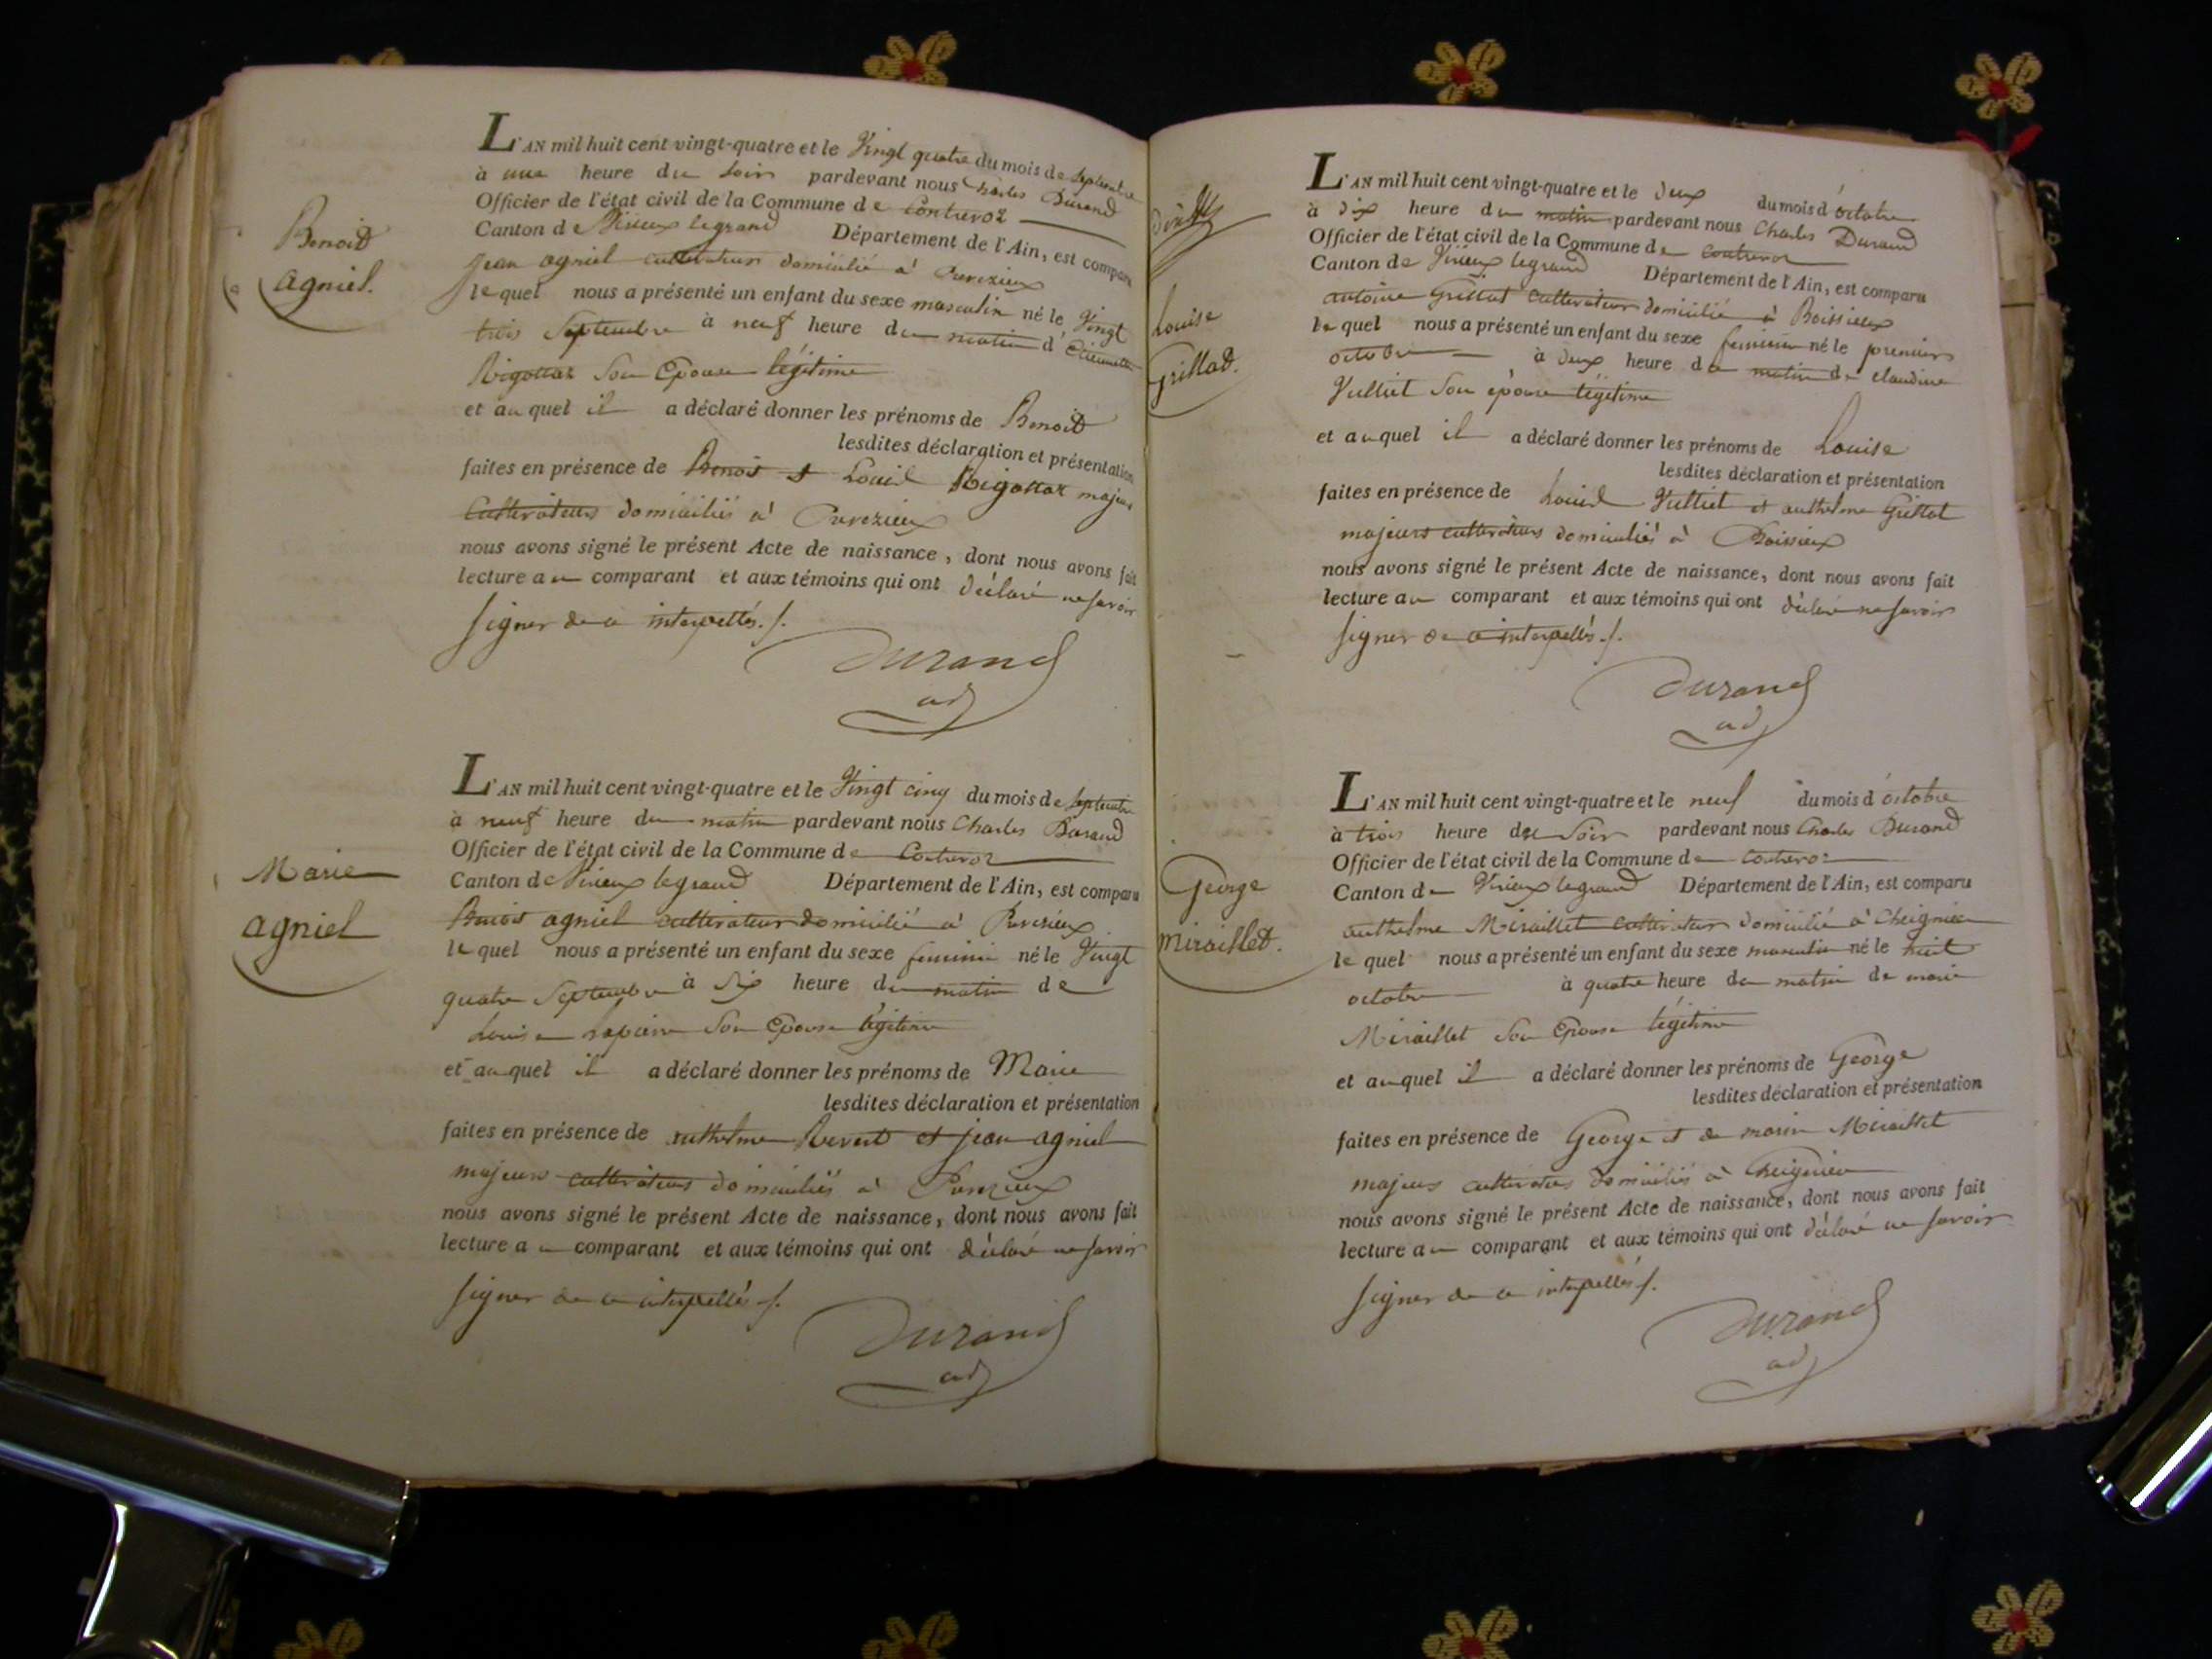 Benoit
agniel.
L'AN mil huit cent vingt-quatre et le Vingt quatre du mois de Septembre
à une heure du Soir pardevant nous Charles Durand
Officier de l'état civil de la Commune de Contrevoz
Canton de Virieux legrand Département de l'Ain, est comparu
jean agniel cultivateur domicilié à
le quel nous a présenté un enfant du sexe masculin né le Vingt
trois Septembre à neuf heure du matin d'Etiennette
Rigottaz Son Epouse légitime
et au quel il a déclaré donner les prénoms de Benoit
lesdites déclaration et présentation
faites en présence de Benoit & Louis Rigottaz majeurs
Cultivateurs domiciliés à
nous avons signé le présent Acte de naissance, dont nous avons fait
lecture au comparant et aux témoins qui ont déclaré ne savoir
signer de ce interpellés./.
Durand
adj
Marie
agniel
L'AN mil huit cent vingt-quatre et le Vingt cinq du mois de Septembre
à neuf heure du matin pardevant nous Charles Durand
Officier de l'état civil de la Commune de Contrevoz
Canton de Virieux legrand Département de l'Ain, est comparu
Benoit agniel cultivateur domicilié à
le quel nous a présenté un enfant du sexe feminin né le Vingt
quatre Septembre à Six heure du matin de
Louise Son Epouse légitime
et au quel il a déclaré donner les prénoms de Marie
lesdites déclaration et présentation
faites en présence de anthelme et jean agniel
majeurs cultivateurs domiciliés à
nous avons signé le présent Acte de naissance, dont nous avons fait
lecture au comparant et aux témoins qui ont déclaré ne savoir
signer de ce interpellés ./.
Durand
adj
Louise
Grillat.
L'AN mil huit cent vingt-quatre et le deux du mois d'octobre
à dix heure du matin pardevant nous Charles Durand
Officier de l'état civil de la Commune de contrevoz
Canton de Virieux legrand Département de l'Ain, est comparu
antoine Grillat cultivateur domicilié à Boissieux
le quel nous a présenté un enfant du sexe feminin né le premier
octobre à deux heure du matin de claudine
Vulliet Son épouse légitime
et au quel il a déclaré donner les prénoms de Louise
lesdites déclaration et présentation
faites en présence de Louis Vulliet et anthelme Grillat
majeurs cultivateurs domiciliés à Boissieux
nous avons signé le présent Acte de naissance, dont nous avons fait
lecture au comparant et aux témoins qui ont déclaré ne savoir
signer de ce interpellés./.
Durand
adj
George
Miraillet.
L'AN mil huit cent vingt-quatre et le neuf du mois d'octobre
à trois heure du Soir pardevant nous Charles Durand
Officier de l'état civil de la Commune de Contrevoz
Canton de Virieux legrand Département de l'Ain, est comparu
anthelme Miraillet cultivateur domicilié à Cheignieu
le quel nous a présenté un enfant du sexe masculin né le huit
octobre à quatre heure du matin de marie
Miraillet Son Epouse légitime
et au quel il a déclaré donner les prénoms de George
lesdites déclaration et présentation
faites en présence de George et de marin Miraillet
majeurs cultivateurs domiciliés à Cheignieu
nous avons signé le présent Acte de naissance, dont nous avons fait
lecture au comparant et aux témoins qui ont déclaré ne savoir
signer de ce interpellés ./.
Durand
adj